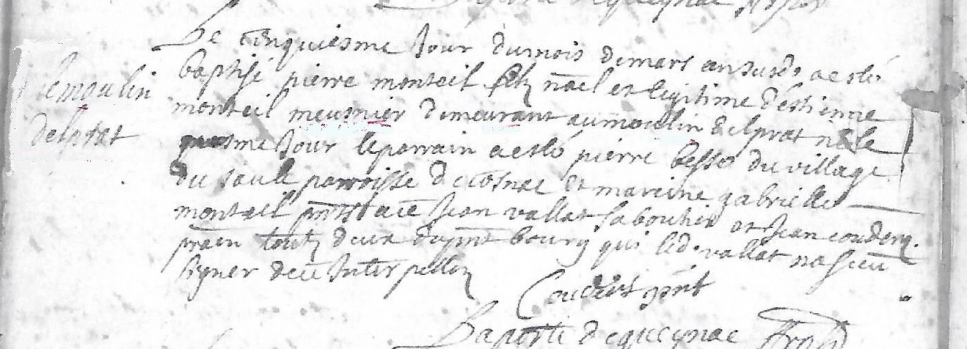 Le cinquiesme Jour du mois de mars an susd a esté
baptisé pierre monteil filz nãel et legitime d'estienne
monteil meusnier demeurant au moulin delprat né le
mesme Jour le parrain a esté pierre besse du village
du saule parroisse de cosnac et mareine gabrielle
monteil pnts a ce Jean vallat laboureur et Jean couderq
praen touts deux du pnt bourg qui led vallat na sceu
signer de ce Interpellez
Coudert pnt
Laporte de queynac
le moulin
delprat